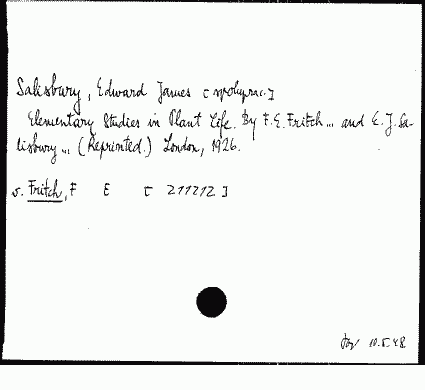 Salisbury, Edward James [współprac.]
Elementary Studies in Plant Life. By F.E. Fritch... and E.J. Sa-
lisbury... (Reprinted.) London, 1926.
v. Fritch, F E [ 211212 ]
10.5.48